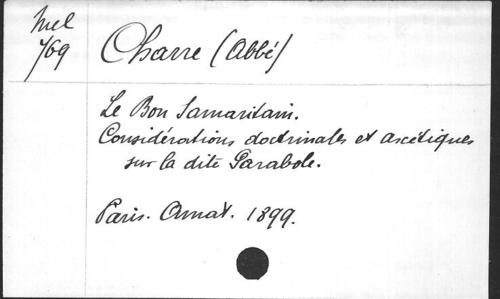 Mel
769
Charre (Abbé)
Le Bon Samaritain.
Considérations doctrinales et ascétiques
sur la dite Parabole.
Paris. Amat. 1899.